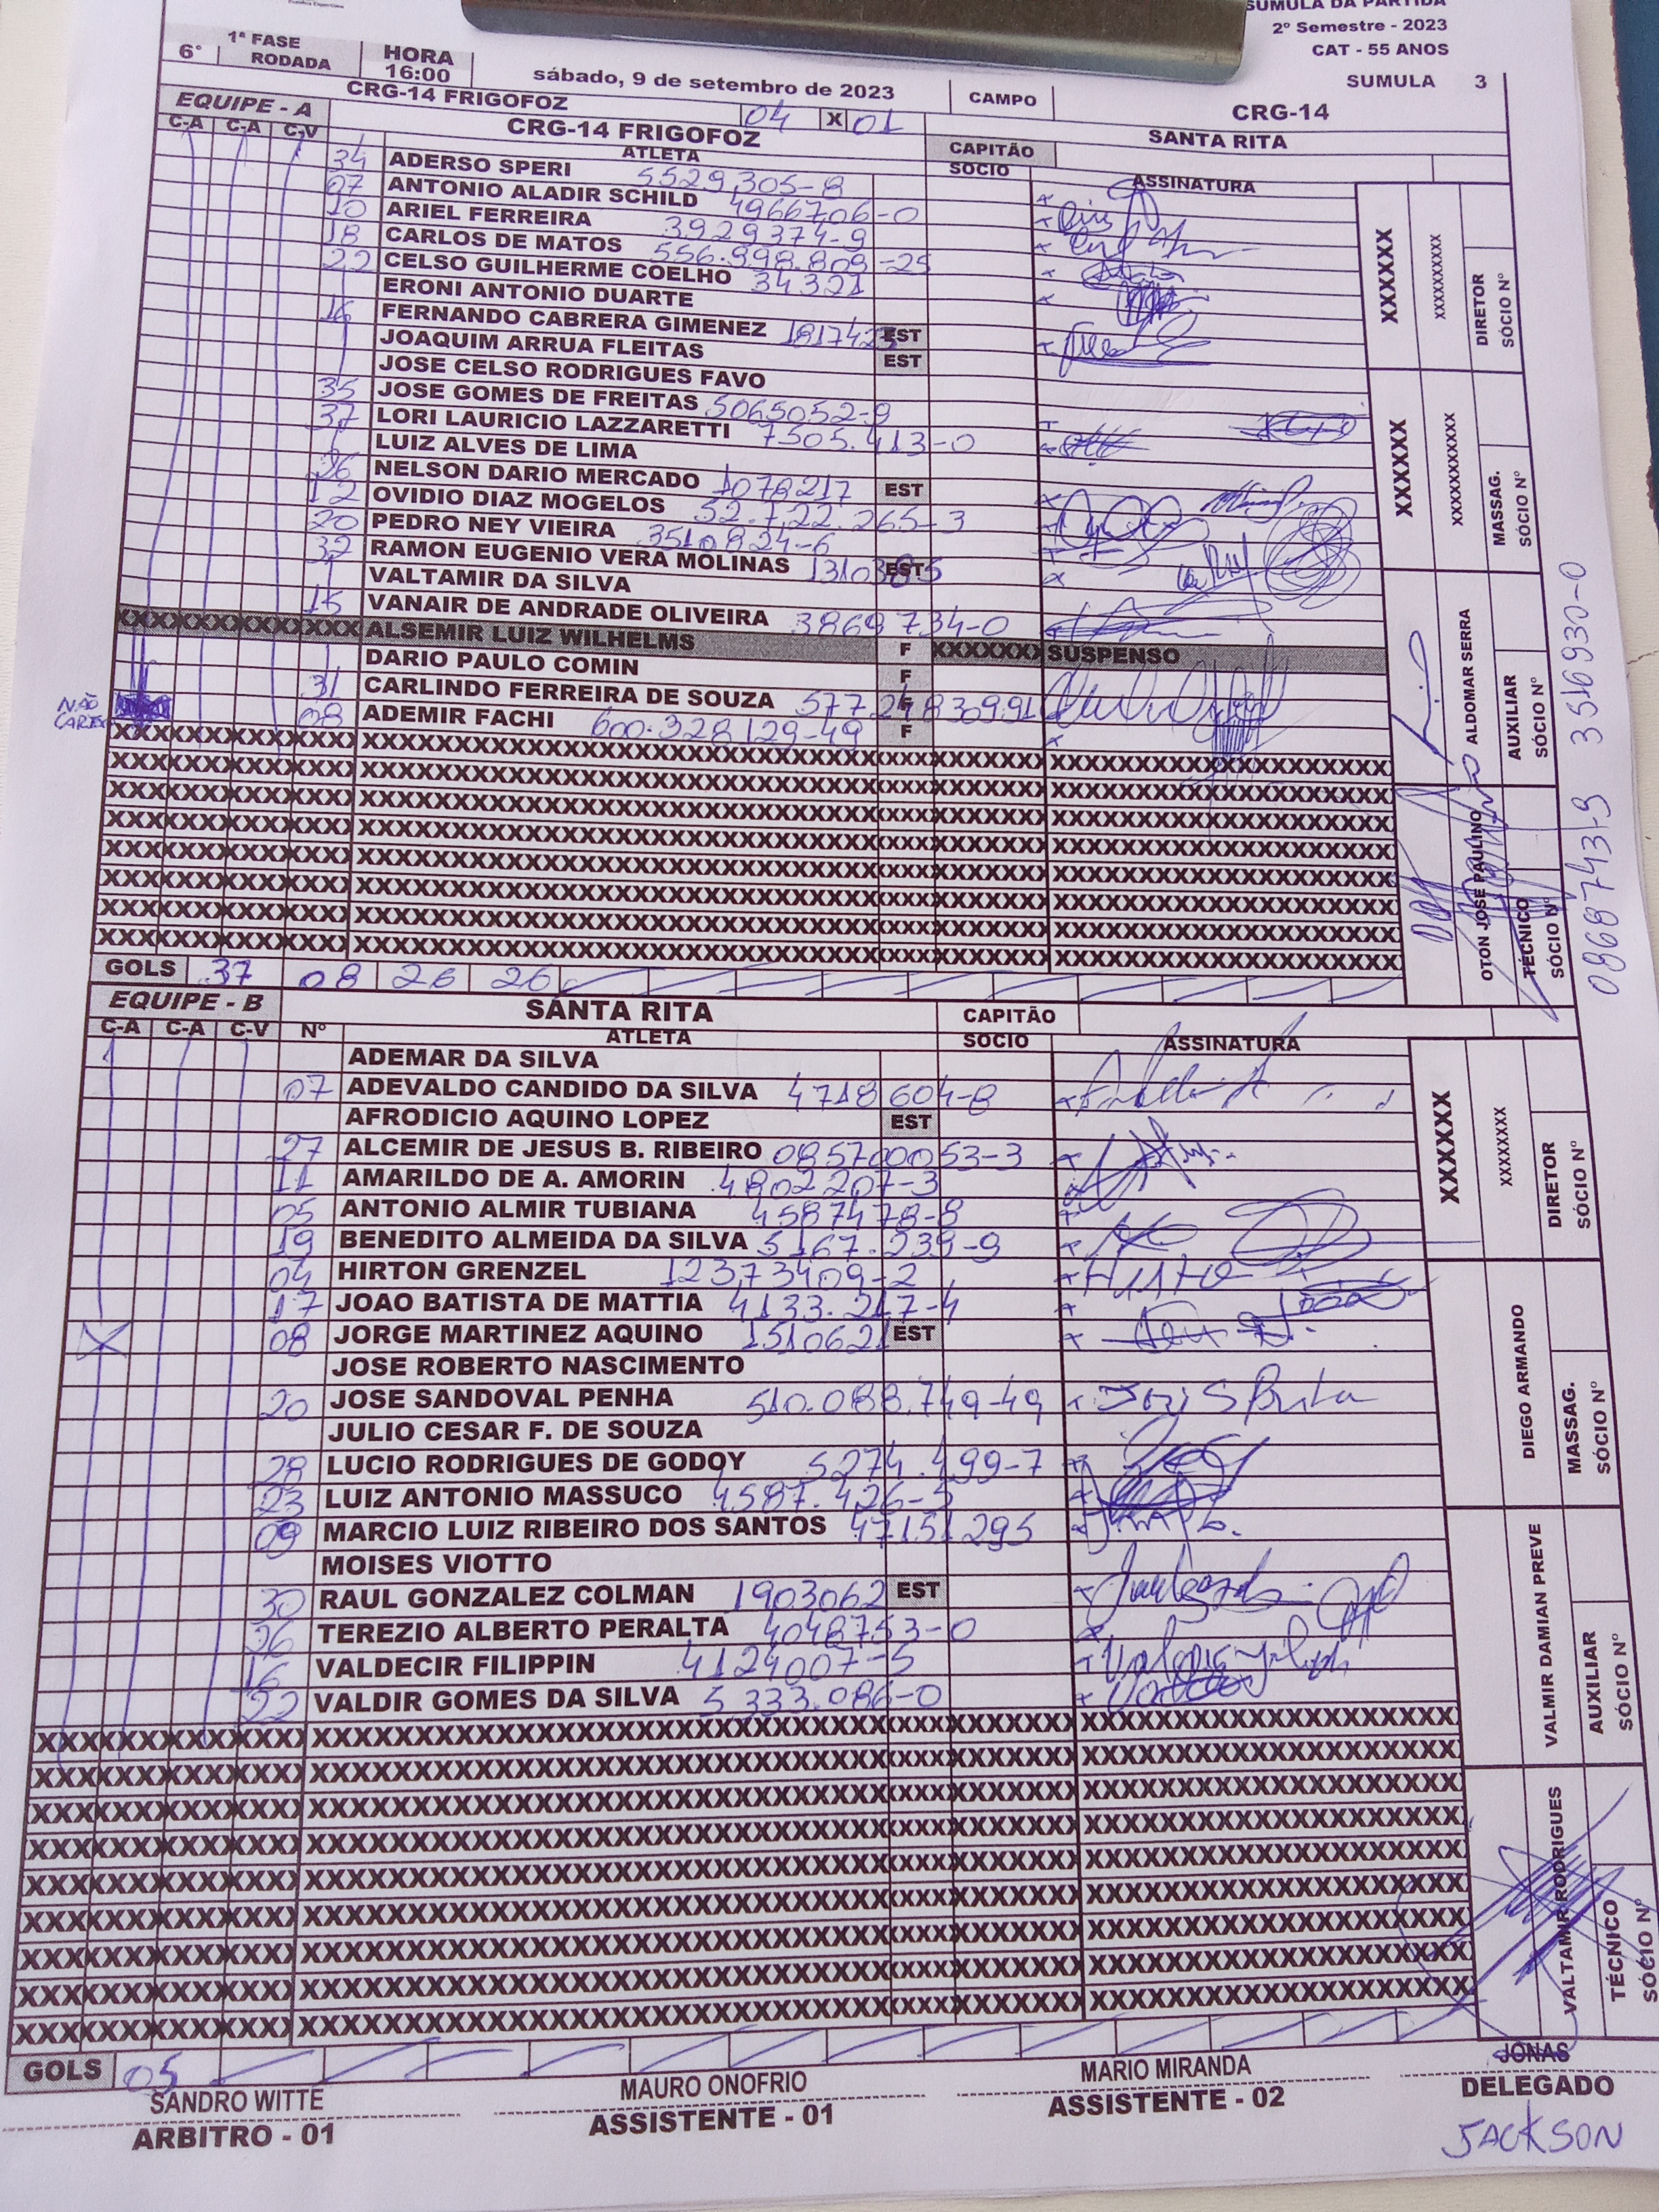 SUMULA DA PARTIDA
2º Semestre - 2023
CAT - 55 ANOS
SUMULA 3
1ª FASE
6° RODADA
HORA
16:00
sábado, 9 de setembro de 2023
CAMPO
CRG-14
EQUIPE - A
CRG-14 FRIGOFOZ 04 X 01 SANTA RITA
CRG-14 FRIGOFOZ CAPITÃO
C-A C-A C-V ATLETA SOCIO ASSINATURA
34 ADERSO SPERI 5529305-8
07 ANTONIO ALADIR SCHILD 4966706-0
10 ARIEL FERREIRA 3929374-9
18 CARLOS DE MATOS 556.998.809-25
22 CELSO GUILHERME COELHO 34321
ERONI ANTONIO DUARTE
16 FERNANDO CABRERA GIMENEZ EST
JOAQUIM ARRUA FLEITAS EST
JOSE CELSO RODRIGUES FAVO
35 JOSE GOMES DE FREITAS 5065052-9
37 LORI LAURICIO LAZZARETTI 7505.413-0
LUIZ ALVES DE LIMA
26 NELSON DARIO MERCADO 1078217 EST
12 OVIDIO DIAZ MOGELOS 52.722.265-3
20 PEDRO NEY VIEIRA 3510824-6
32 RAMON EUGENIO VERA MOLINAS EST
VALTAMIR DA SILVA
15 VANAIR DE ANDRADE OLIVEIRA 3869734-0
XXXXXXXXXXXXXXX ALSEMIR LUIZ WILHELMS F XXXXXXX SUSPENSO
DARIO PAULO COMIN F
31 CARLINDO FERREIRA DE SOUZA 57724830991 F
NÃO
08 ADEMIR FACHI 600.328.129-49 F
GOLS 37 08 26 26
XXXXXX XXXXXXXXXX DIRETOR SÓCIO Nº
XXXXXX XXXXXXXXXXX MASSAG. SÓCIO Nº
ALDOMAR SERRA AUXILIAR SÓCIO Nº 3516930-0
OTON JOSE PAULINO TÉCNICO SÓCIO Nº 0868743-9
EQUIPE - B SANTA RITA CAPITÃO
C-A C-A C-V Nº ATLETA SOCIO ASSINATURA
ADEMAR DA SILVA
07 ADEVALDO CANDIDO DA SILVA 4718604-8
AFRODICIO AQUINO LOPEZ EST
27 ALCEMIR DE JESUS B. RIBEIRO 0857000053-3
11 AMARILDO DE A. AMORIN 4802207-3
05 ANTONIO ALMIR TUBIANA 4587478-8
19 BENEDITO ALMEIDA DA SILVA 5167.239-9
04 HIRTON GRENZEL 12373409-2
17 JOAO BATISTA DE MATTIA 4133.217-4
X 08 JORGE MARTINEZ AQUINO 1510621 EST
JOSE ROBERTO NASCIMENTO
20 JOSE SANDOVAL PENHA 510.088.749-49
JULIO CESAR F. DE SOUZA
28 LUCIO RODRIGUES DE GODOY 5274.499-7
23 LUIZ ANTONIO MASSUCO 4587.426-5
09 MARCIO LUIZ RIBEIRO DOS SANTOS 47151295
MOISES VIOTTO
30 RAUL GONZALEZ COLMAN 1903062 EST
26 TEREZIO ALBERTO PERALTA 4048753-0
16 VALDECIR FILIPPIN 4124007-5
22 VALDIR GOMES DA SILVA 5.333.086-0
XXXXXX XXXXXXXXX DIRETOR SÓCIO Nº
DIEGO ARMANDO MASSAG. SÓCIO Nº
VALMIR DAMIAN PREVE AUXILIAR SÓCIO Nº
VALTAMIR RODRIGUES TÉCNICO SÓCIO Nº
GOLS 05
SANDRO WITTE MAURO ONOFRIO MARIO MIRANDA JONAS
ARBITRO - 01 ASSISTENTE - 01 ASSISTENTE - 02 DELEGADO
JACKSON